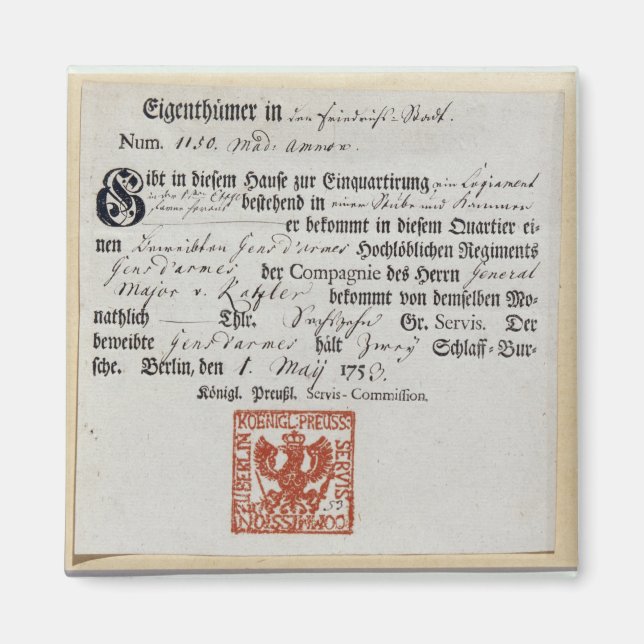 Eigenthümer in den Friedrichs-Stadt.
Num. 1150. Mad: Ammon.
Gibt in diesem Hause zur Einquartirung, ein Logiament
in der
bestehend in einer Stube und Kammer
er bekommt in diesem Quartier ei-
nen Beweibten Gens d'armes Hochlöblichen Regiments
Gens d'armes der Compagnie des Herrn General
Major v. Katzler bekommt von demselben Mo-
nathlich Thlr. Sechszehn Gr. Servis. Der
beweibte Gens d'armes hält Zwey Schlaff-Bur-
sche. Berlin, den 1. Maÿ 1753.
Königl. Preußl. Servis-Commission.
KOENIGL: PREUSS:
SERVIS
COMMISSION
ZU BERLIN
53